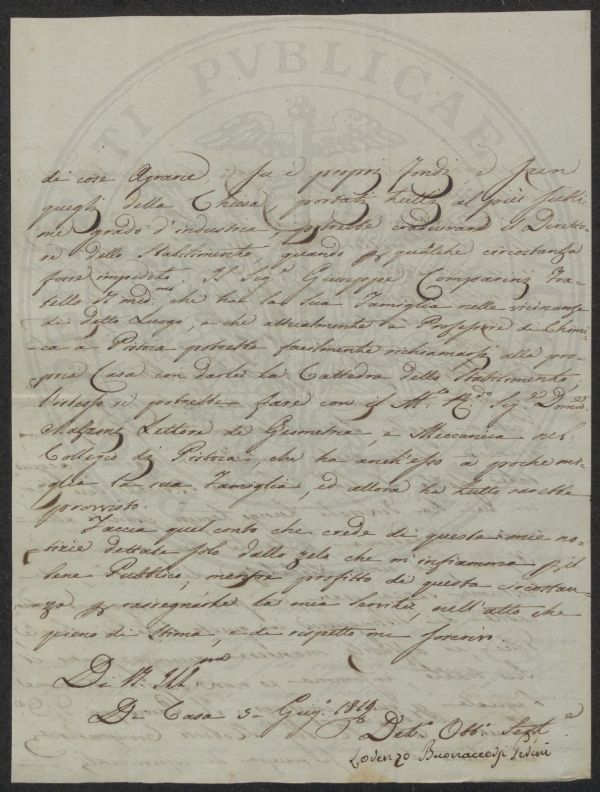 TI PVBLICAE
di cose Agrarie e su i proprj fondi e sopra
quegli della Chiesa, portati tutti al più subli-
me grado d'industria, potrebbe coadiuvare il Diretto-
re dello Stabilimento, quando p qualche circostanza
fosse impedito. Il Sigr Giuseppe Comparini Fra-
tello del medmo che ha la sua Famiglia nelle vicinanze
di detto Luogo, e che attualmente è Professore di Chimi-
ca a Pistoia potrebbe facilmente richiamarsi alla pro-
pria Casa con darli la Cattedra dello Stabilimento,
l'istesso si potrebbe fare con il Mto Rdo Sigr Domco
Lettore di Geometria, e Meccanica nel
Collegio di Pistoia, che ha anch'esso a poche mi-
glia la sua Famiglia, ed allora ha tutto sarebbe
provvisto.
Faccia quel conto che crede di queste mie no-
tizie dettate solo dallo zelo che m'infiamma p il
bene Pubblico; mentre profitto di questa circostan-
za p rassegnarle la mia servitù, nell'atto che
pieno di stima, e di rispetto mi soscrivo
Di V. Illma
Di Casa 3 Giugo 1819
Devo Obbo Servre
Lorenzo Buonaccorsi Perini